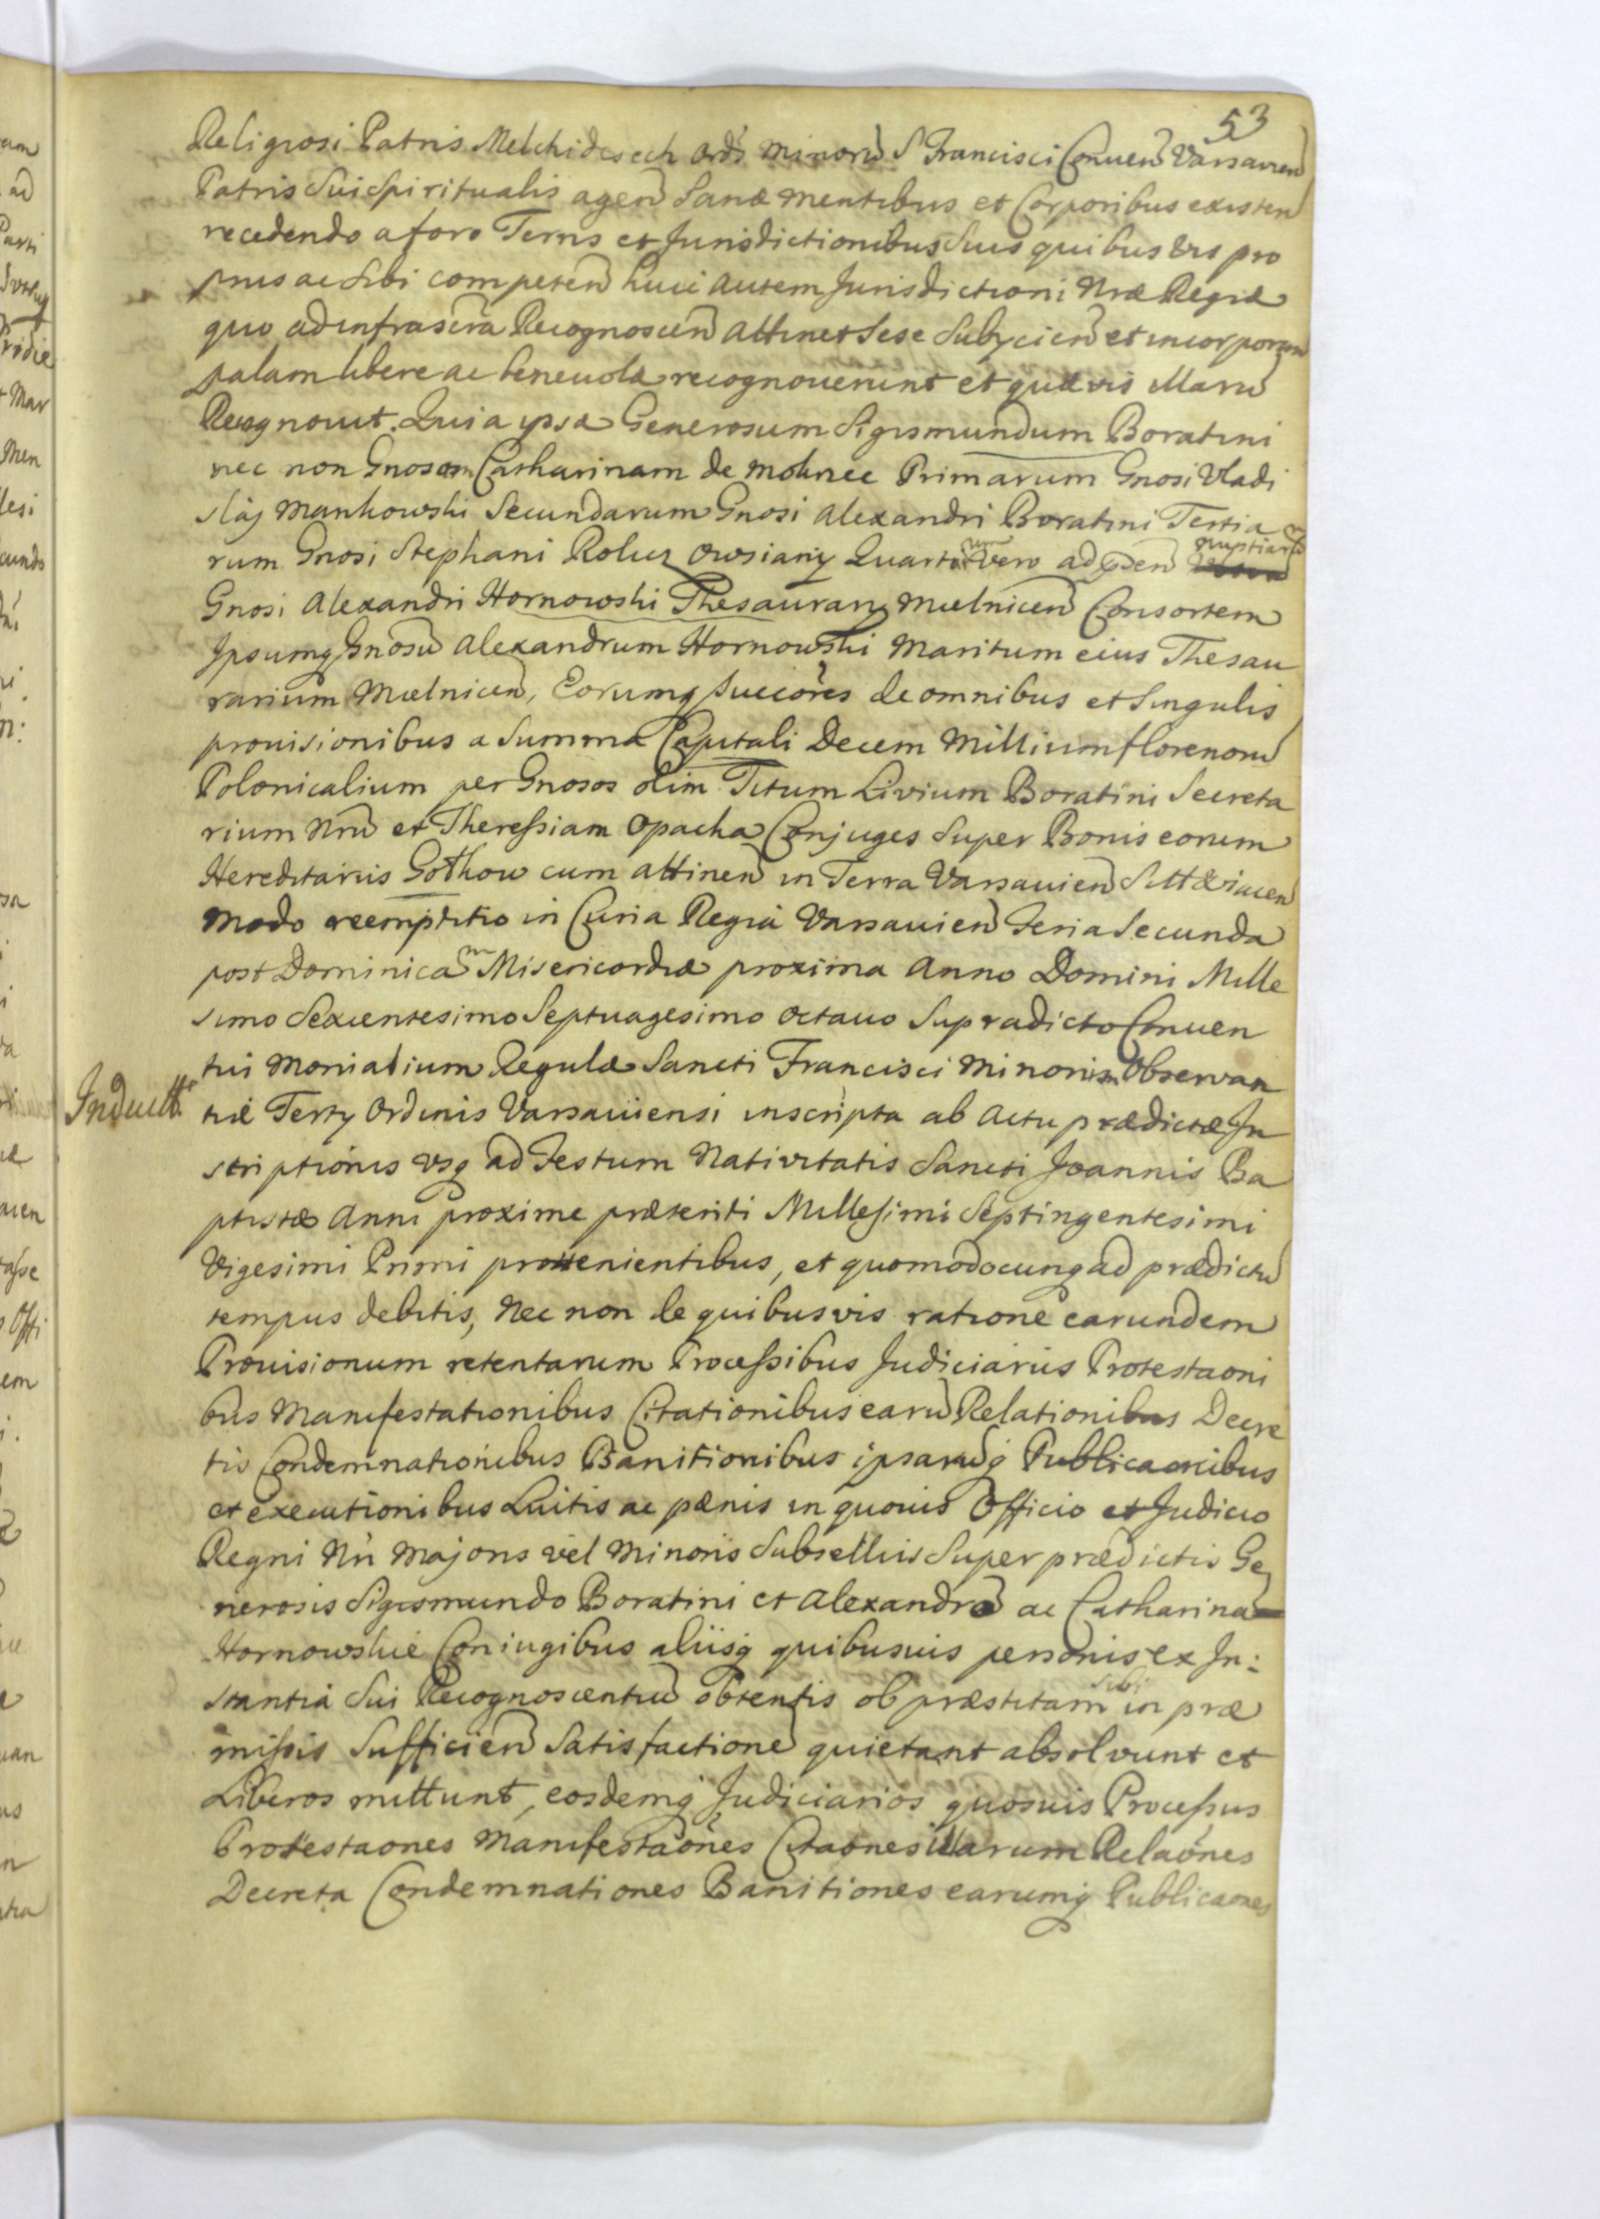 53
Religiosi Patris Melchidesech Ordīs Minorū S Francisci Conuen̄ Varsavien̄
Patris Sui Spiritualis agen̄ Sanæ mentibus et Corporibus existen̄
recedendo a foro Terris et Jurisdictionibus Suis quibusvis pro
prijs ac Sibi competen̄ huic autem Jurisdictioni Nræ Regiæ
quo ad infrascrīa Recognoscen̄ attinet Sese Subyicien̄ et incorporan̄
palam libere ac beneuolæ recognouerunt et quævis illarū
Recognouit. Quia ipsæ Generosum Sigismundum Boratini
nec non Gnosam Catharinam de Mokrzec Primarum Gnosi Vladi
slaj Mankowski Secundarum Gnosi Alexandri Boratini Tertia
rum Gnosi Stephani Roluz Owsiany Quartarum Vero ad p̄den̄ nuptiarū
Gnosi Alexandri Hornowski Thesaurarij Mielnicen̄ Consortem
Ipsumq Gnosū Alexandrum Hornowski Maritum eius Thesau
rarium Mielnicen̄, Eorumq Succōres de omnibus et Singulis
prouisionibus a Summa Capitali Decem Millium florenorū
Polonicalium per Gnosos olim Titum Livium Boratini Secreta
rium Nrū et Theressiam Opacka Conjuges Super Bonis eorum
Hereditariis Gothow cum attinen̄ in Terra Varsauien̄ Sittæ iacen̄
modo reemptitio in Curia Regia Varsauien̄ Feria Secunda
post Dominicam Misericordiæ proxima Anno Domini Mille
simo Sexcentesimo Septuagesimo octauo Supradicto Conuen
tui Monialium Regulæ Sancti Francisci Minorum Observan
Indult.
tiæ Tertij Ordinis Varsauiensi inscripta ab Actu prædictæ In
scriptionis vsq ad Festum Nativitatis Sancti Joannis Ba
ptistæ Anni proxime præteriti Millesimi Septingentesimi
Vigesimi Primi provenientibus, et quomodocunq ad prædictū
tempus debitis, Nec non de quibusvis ratione earundem
Prouisionum retentarum Processibus Judiciariis Protestaoni
bus Manifestationibus Citationibus earū Relationibus Decre
tis Condemnationibus Banitionibus ipsarūq Publicaonibus
et executionibus Luitis ac pænis in quouis Officio et Judicio
Regni Nri Majoris vel Minoris Subsellii Super prædictis Ge
nerosis Sigismundo Boratini et Alexandro ac Catharina
Hornowskie Coniugibus aliisq quibusuis personis ex In:
stantia Sui Recognoscentiū obtentis ob præstitam sibi in præ
missis Sufficien̄ Satisfactionē quietant absolvunt et
Liberos mittunt, eosdemq Judiciarios quosuis Processus
Protestaones Manifestaōnes Citaōnes illarum Relaōnes
Decreta Condemnationes Banitiones earumq Publicaones